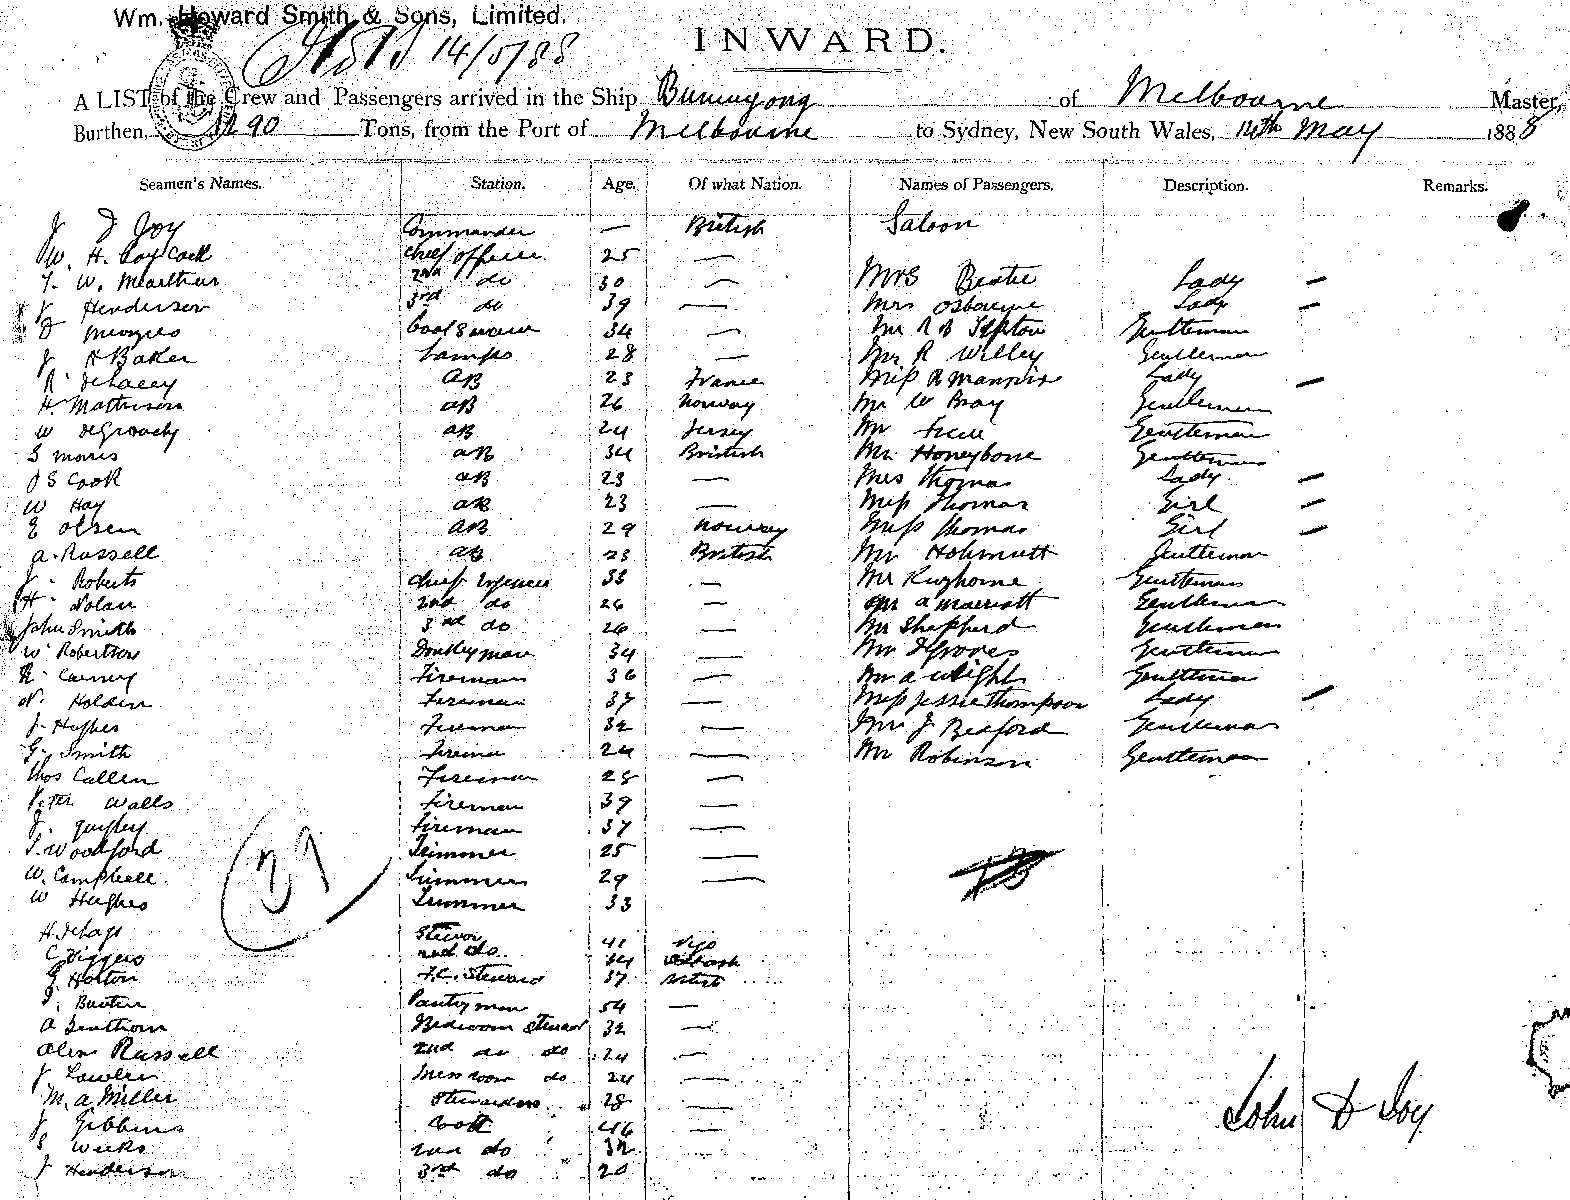 Wm. Howard Smith & Sons, Limited.
14/5/88
INWARD.
A LIST of the Crew and Passengers arrived in the Ship Buninyong of Melbourne Master,
Burthen, 1290 Tons, from the Port of Melbourne to Sydney, New South Wales, May 1888
Seamen's Names. Station. Age. Of what Nation. Names of Passengers. Description. Remarks.
J D Joy Commander — British Saloon
W. H. Chief officer 25 —
W. McArthur 2nd do 30 — Mrs Lady —
J Henderson 3rd do 39 — Mrs Osbourne Lady —
Menzies 34 — Mr R B Gentleman
J H Baker Lamps 28 — Mr R Willey Gentleman
R. DeLacey AB 23 France Miss R Lady —
H Mathieson AB 26 Norway Mr W Bray Gentleman
W DeGrouchy AB 24 Jersey Mr Gentleman
S Morris AB 34 British Mr Honeybone Gentleman
J S Cook AB 23 — Mrs Thomas Lady —
W Hay AB 23 — Miss Thomas Girl —
E Olsen AB 29 Norway Miss Thomas Girl —
A. Russell AB 23 British Mr Gentleman
J. Roberts Chief Engineer 33 — Mr Kinghorne Gentleman
H. Nolan 2nd do 26 — Mr A Marriott Gentleman
John Smith 3rd do 26 — Mr Shepherd Gentleman
W Robertson Donkeyman 34 — Mr Groves Gentleman
R. Carney Fireman 36 — Mr A Wright Gentleman
N. Holden Fireman 37 — Miss Jessie Thompson Lady —
J. Hughes Fireman 32 — Mr J Bedford Gentleman
G. Smith Fireman 24 — Mr Robinson Gentleman
Thos Callen Fireman 28 —
Peter Walls Fireman 39 —
J. Quigley Fireman 37 —
T. Woodford Trimmer 25 —
W. Campbell Trimmer 29 —
W Hughes Trimmer 33
39
H. Stewd 41
C Diggers 2nd do 44
G. Horton F.C. Steward 37 British
Pantryman 54 —
A Bedroom Steward 32 —
Alex Russell 2nd do do 24 —
J Lawler Messroom do 24 —
M. A. Miller Stewardess 28 —
J Gibbins Cook 46 —
S Weeks 2nd do 32
J Henderson 3rd do 20
John D Joy